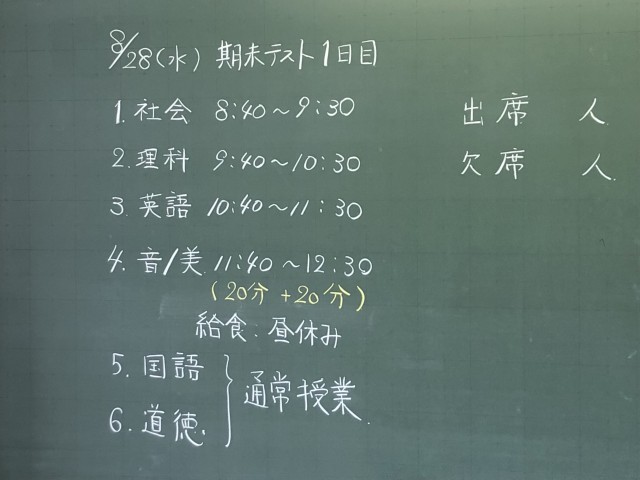 8/28(水) 期末テスト1日目
1. 社会 8:40～9:30 出席 人
2. 理科 9:40～10:30 欠席 人
3. 英語 10:40～11:30
4. 音/美 11:40～12:30
(20分+20分)
給食・昼休み
5. 国語
6. 道徳 } 通常授業